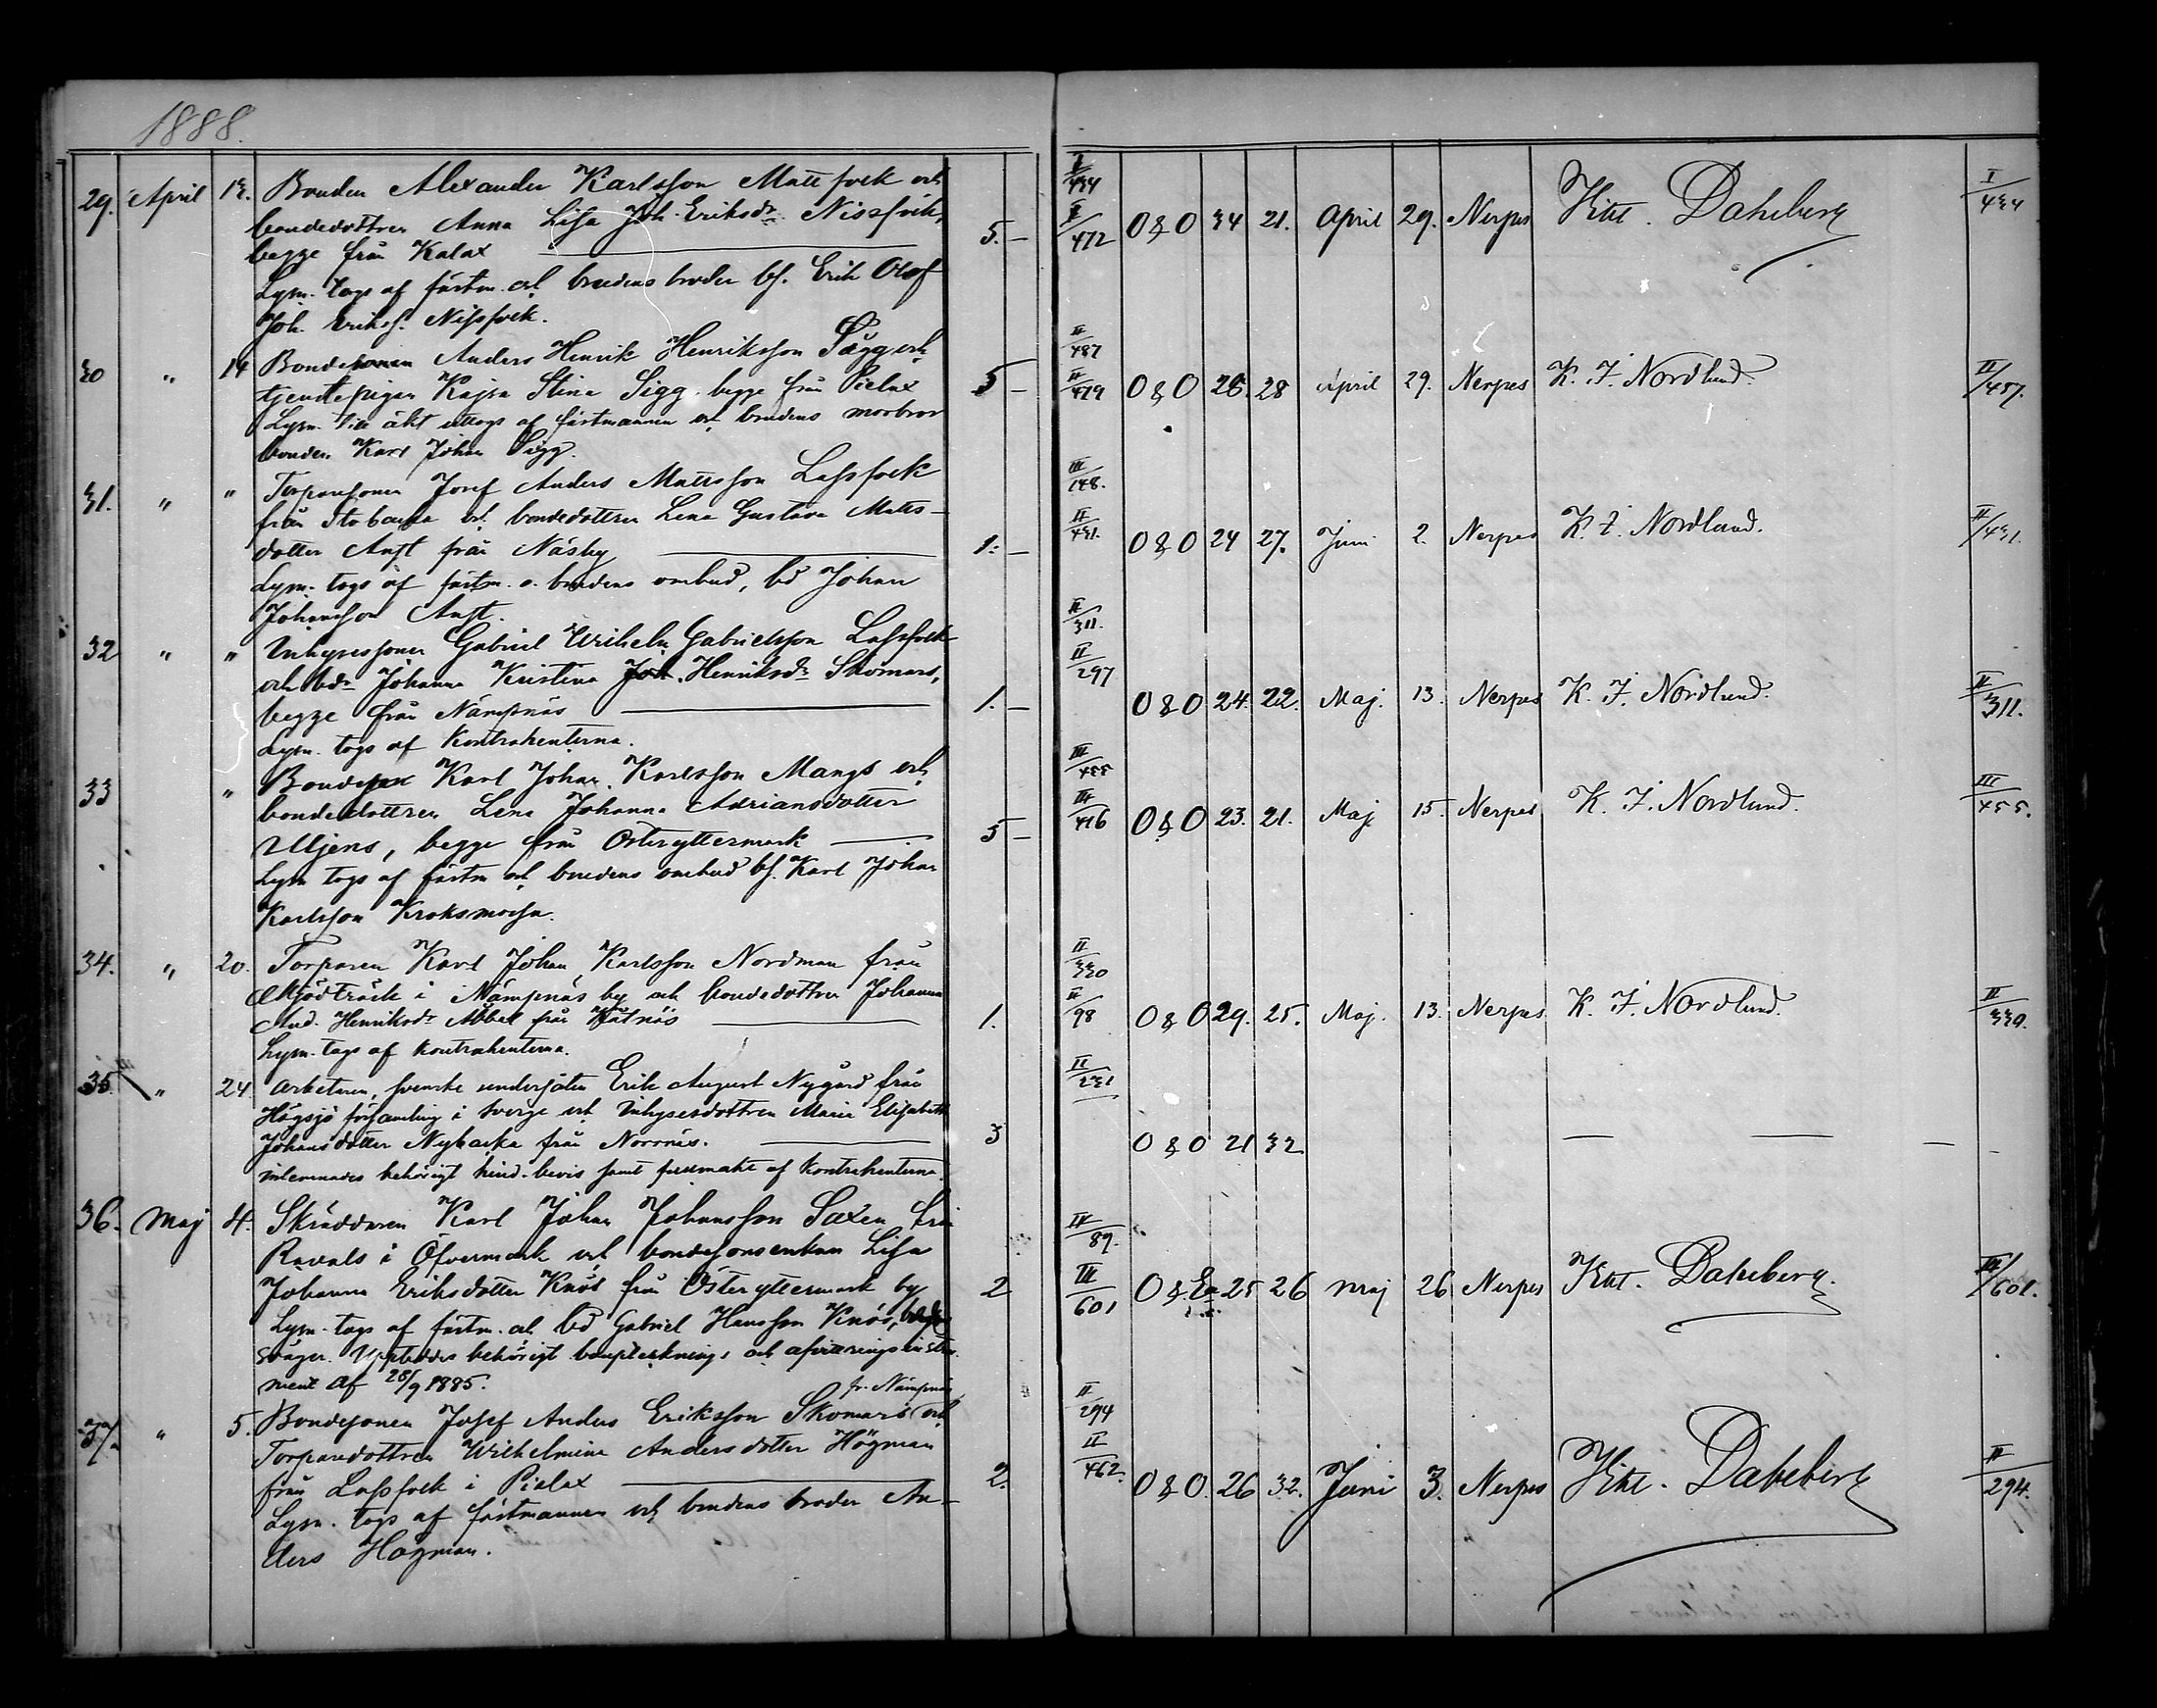 1888.
29. April 13. Bonden Alexander Karlsson Mattfolk och
bondedottren Anna Lisa Joh. Eriksdr Nissfolk,
begge från Kalax
5.–
Lysn. togs af fästm. och brudens broder bs. Erik Olof
Joh. Eriks. Nissfolk.
30 " 14 Bondesonen Anders Henrik Henriksson Sigg och
tjenstepigan Kajsa Stina Sigg, begge från Pielax
5 –
Lysn. till äkt uttogs af fästmannen och brudens morbror
bonden Karl Johan Sigg.
31. " " Torparsonen Josef Anders Mattsson Lassfolk
från Stobacka och bondedottren Lena Gustava Matts-
dotter Anst från Näsby
1. –
Lysn. togs af fästm. o. brudens ombud, bd Johan
Johansson Anst.
32 " " Inhysessonen Gabriel Wilhelm Gabrielsson Lassfolk
och bdr Johanna Kristina Joh. Henriksdr Skomars,
begge från Nämpnäs
1. –
Lysn. togs af kontrahenterna.
33 " Karl Johan Karlsson Mangs och
bondedottren Lena Johanna Adriansdotter
Uljens, begge från Österyttermark
5 –
Lysn togs af fästm och brudens ombud bs. Karl Johan
Karlsson Kroksmosa.
34. " 20. Torparen Karl Johan Karlsson Nordman från
Mjödträsk i Nämpnäs by och bondedottren Johanna
And. Henriksdr Abbel från Kåtnäs
1.
Lysn. togs af kontrahenterna.
35. " 24 Arbetaren, svenske undersåten Erik August Nygård från
Högsjö församling i Sverge och Inhysesdottren Maria Elisabeth
Johansdotter Nybacka från Norrnäs.
3
inlemnades behörigt hind. bevis samt fullmakt af kontrahenterna.
36. Maj 4. Skräddaren Karl Johan Johansson Saxen från
Ravals i Öfvermark och bondesonsenkan Lisa
Johanna Eriksdotter Knös från Österyttermark by
2
Lysn. togs af fästm. och bd Gabriel Hansson Knös,
svåger. Uppteddes behörigt bouptecknings och afvittringsinstru-
ment af 28/9 1885.
fr. Nämpnäs
37. " 5. Bondesonen Josef Anders Eriksson Skomars och
Torparedottren Wilhelmina Andersdotter Högman
från Lassfolk i Pielax
2.
Lysn. togs af fästmannen och brudens broder An-
ders Högman.
I/434
II/472 O & O 34 21. April 29. Nerpes Kikt. Dahlberg I/434
II/487
II/479 O & O 26. 28 April 29. Nerpes K. J. Nordlund. II/487.
III/148.
II/431. O & O 24 27. Juni 2. Nerpes K. J. Nordlund. II/431.
II/311.
II/297 O & O 24. 22. Maj. 13. Nerpes K. J. Nordlund. II/311.
III/455
III/416 O & O 23. 21. Maj 15. Nerpes K. J. Nordlund. III/455.
II/330
II/98 O & O 29. 25. Maj. 13. Nerpes K. J. Nordlund. II/330.
II/231
O & O 21 32 — — —
IV/89.
III/601 O & Ea 25 26 Maj 26 Nerpes Kikt. Dahlberg. III/601.
II/294
II/462. O & O. 26 32. Juni 3. Nerpes Kikt. Dahlberg II/294.